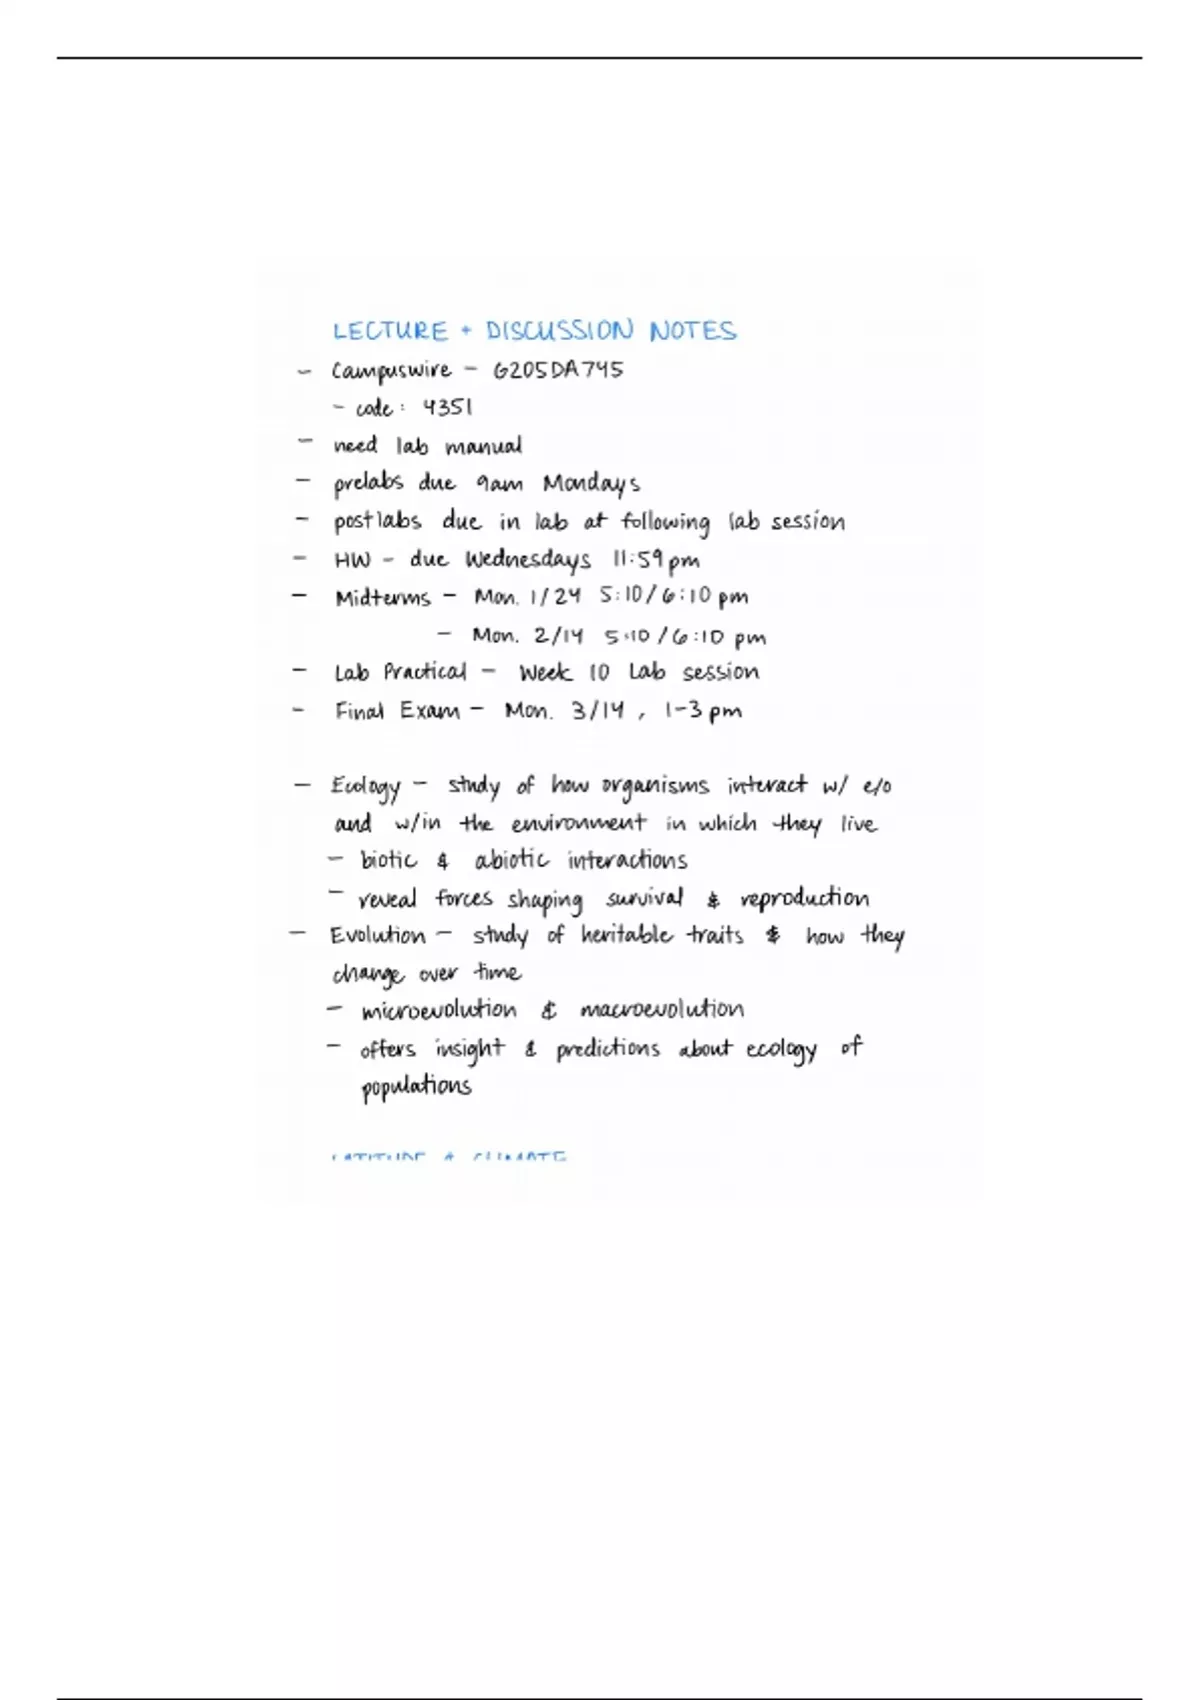 LECTURE + DISCUSSION NOTES
- Campuswire - G205DA745
- code: 4351
- need lab manual
- prelabs due 9am Mondays
- postlabs due in lab at following lab session
- HW - due Wednesdays 11:59pm
- Midterms - Mon. 1/24 5:10/6:10 pm
- Mon. 2/14 5:10/6:10 pm
- Lab Practical - Week 10 Lab session
- Final Exam - Mon. 3/14, 1-3pm
- Ecology - study of how organisms interact w/ e/o
and w/in the environment in which they live
- biotic & abiotic interactions
- reveal forces shaping survival & reproduction
- Evolution - study of heritable traits & how they
change over time
- microevolution & macroevolution
- offers insight & predictions about ecology of
populations
LATITUDE & CLIMATE